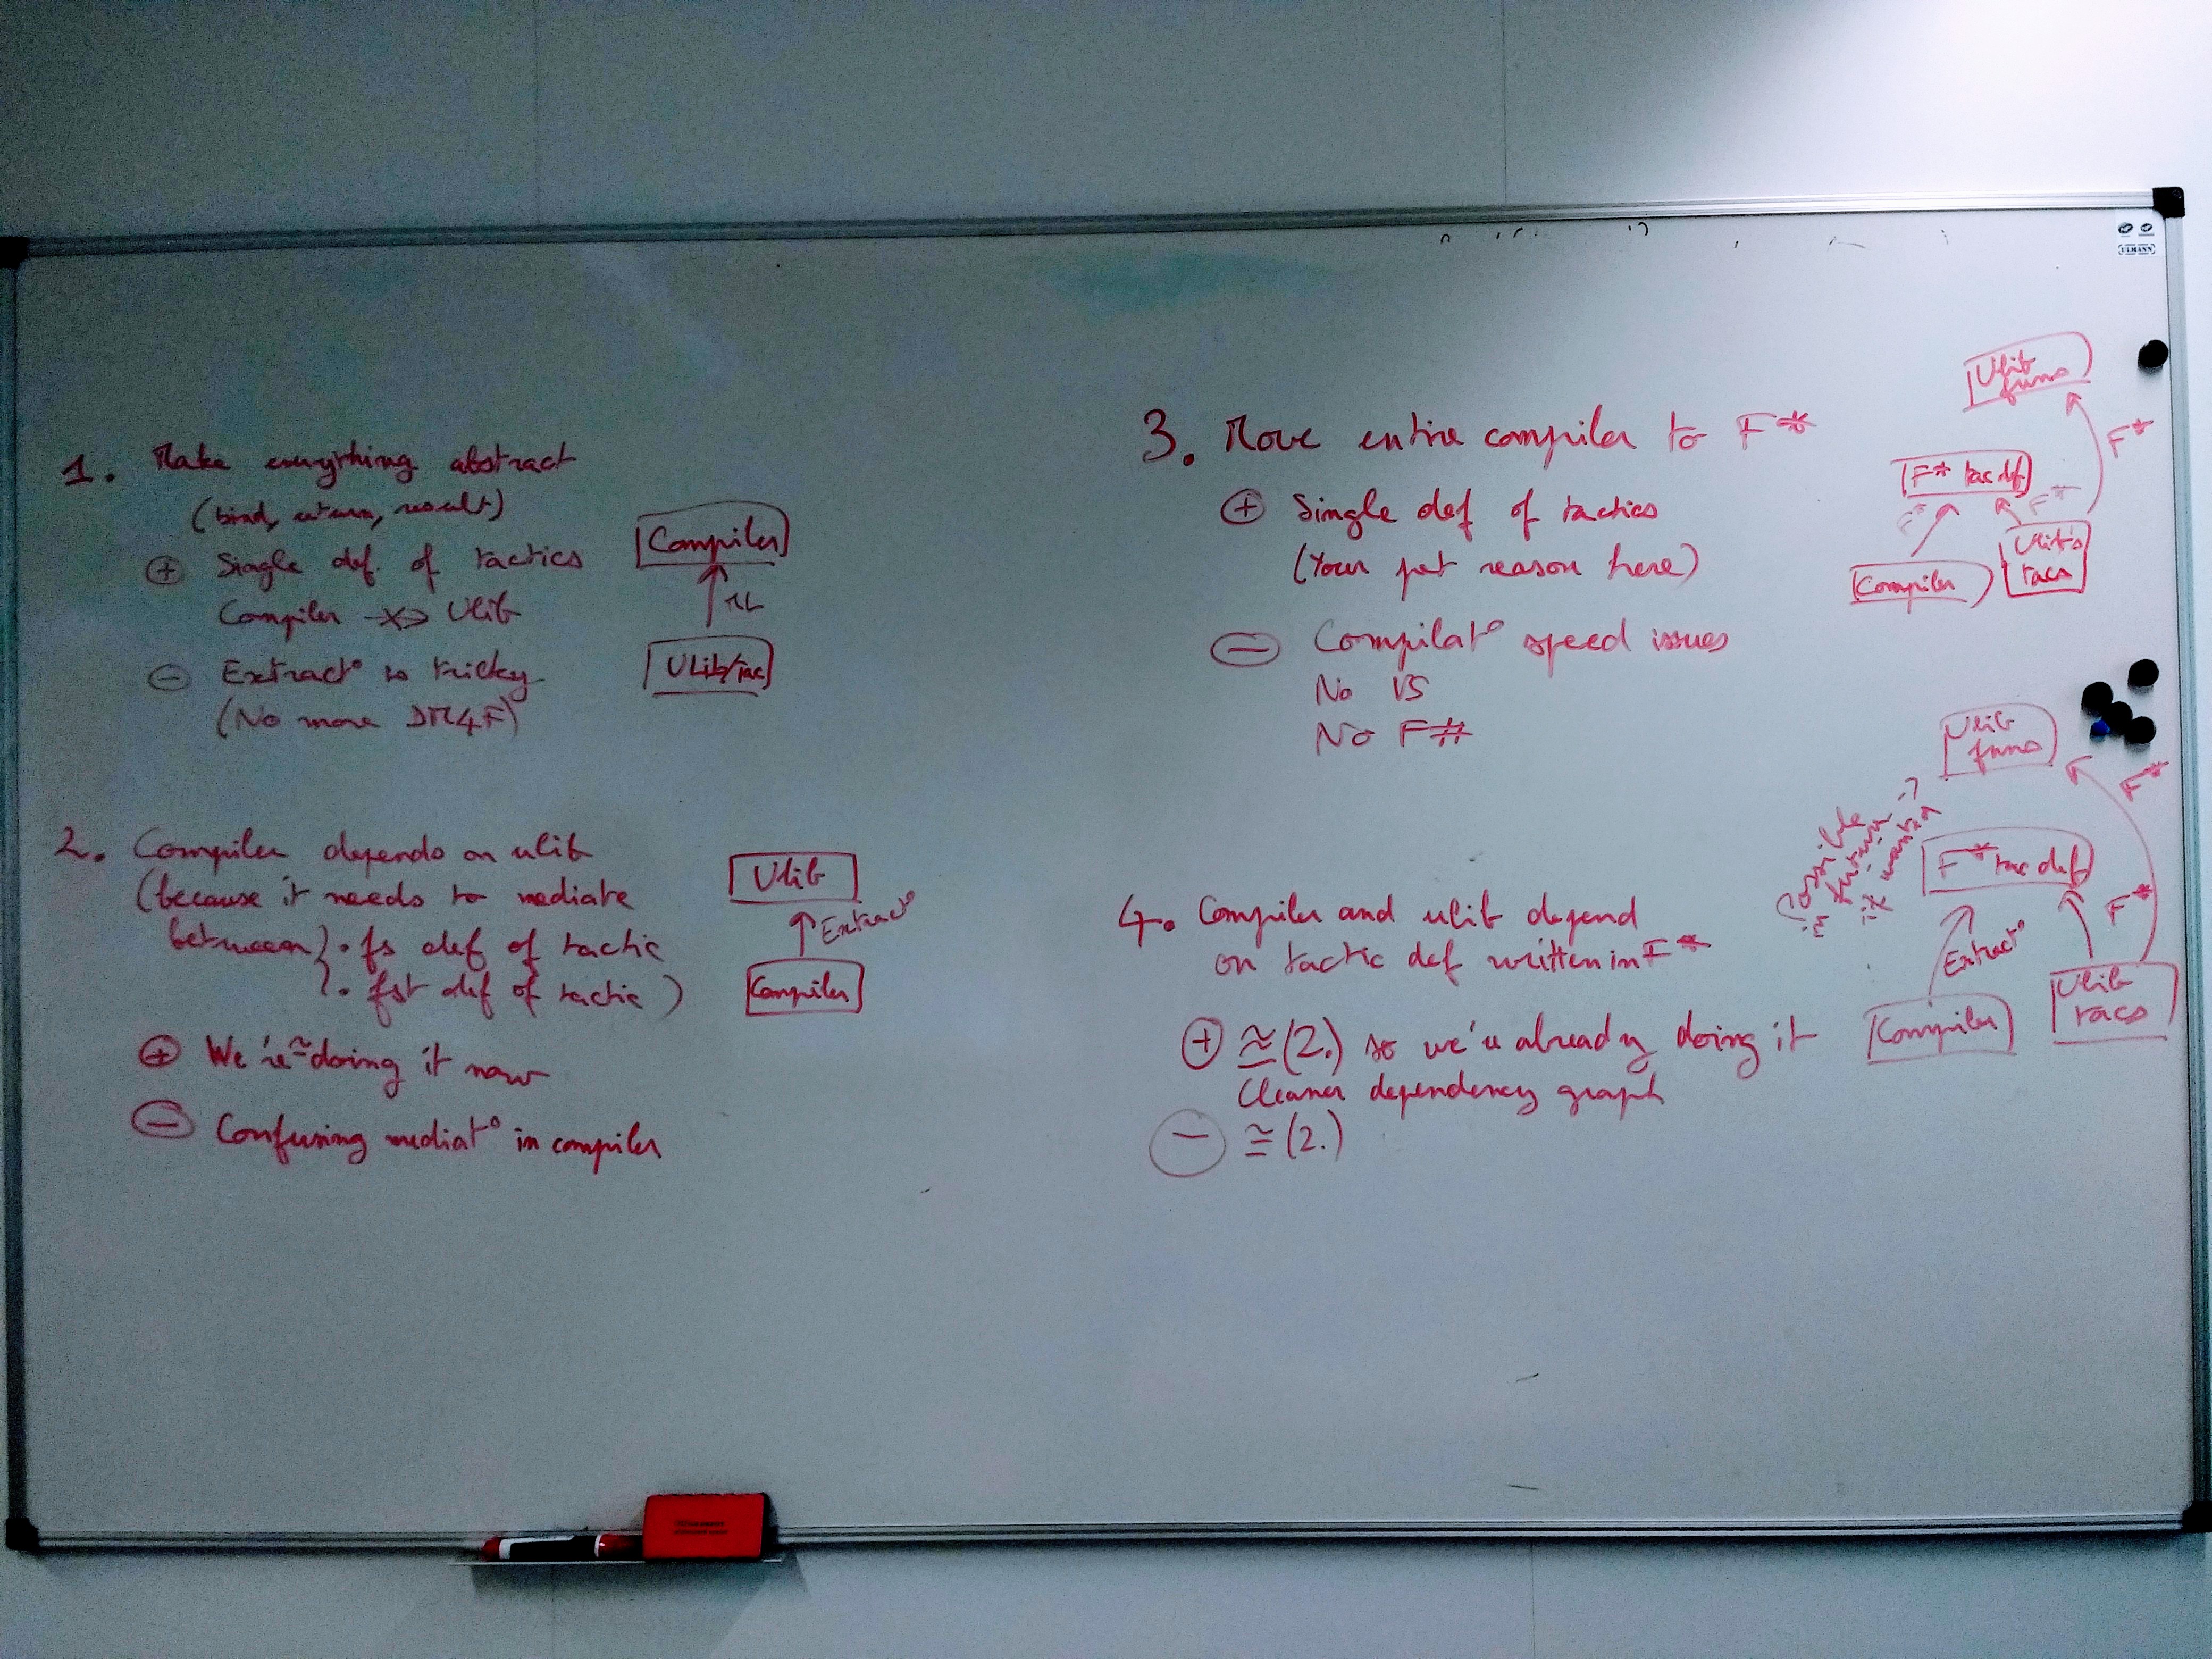 1. Make everything abstract
(bind, return, result)
⊕ Single def. of tactics
Compiler -x-> Ulib
⊖ Extract° is tricky
(No more DM4F)
Compiler
ML
ULib/tac
2. Compiler depends on ulib
(because it needs to mediate
between } . fs def of tactic
. fst def of tactic)
⊕ We're ≃ doing it now
⊖ Confusing mediat° in compiler
Ulib
Extract°
Compiler
3. Move entire compiler to F*
⊕ Single def of tactics
(Your pet reason here)
⊖ Compilat° speed issues
No VS
No F#
Ulib
funs
F*
F* tac def
F* F*
Compiler
Ulib's
tacs
4. Compiler and ulib depend
on tactic def written in F*
⊕ ≅ (2.) so we're already doing it
Cleaner dependency graph
⊖ ≅ (2.)
Ulib
funs
F*
Possible
in future ->
if wanted
F* tac def
Extract°
F*
Compiler
Ulib
tacs
ULMANN